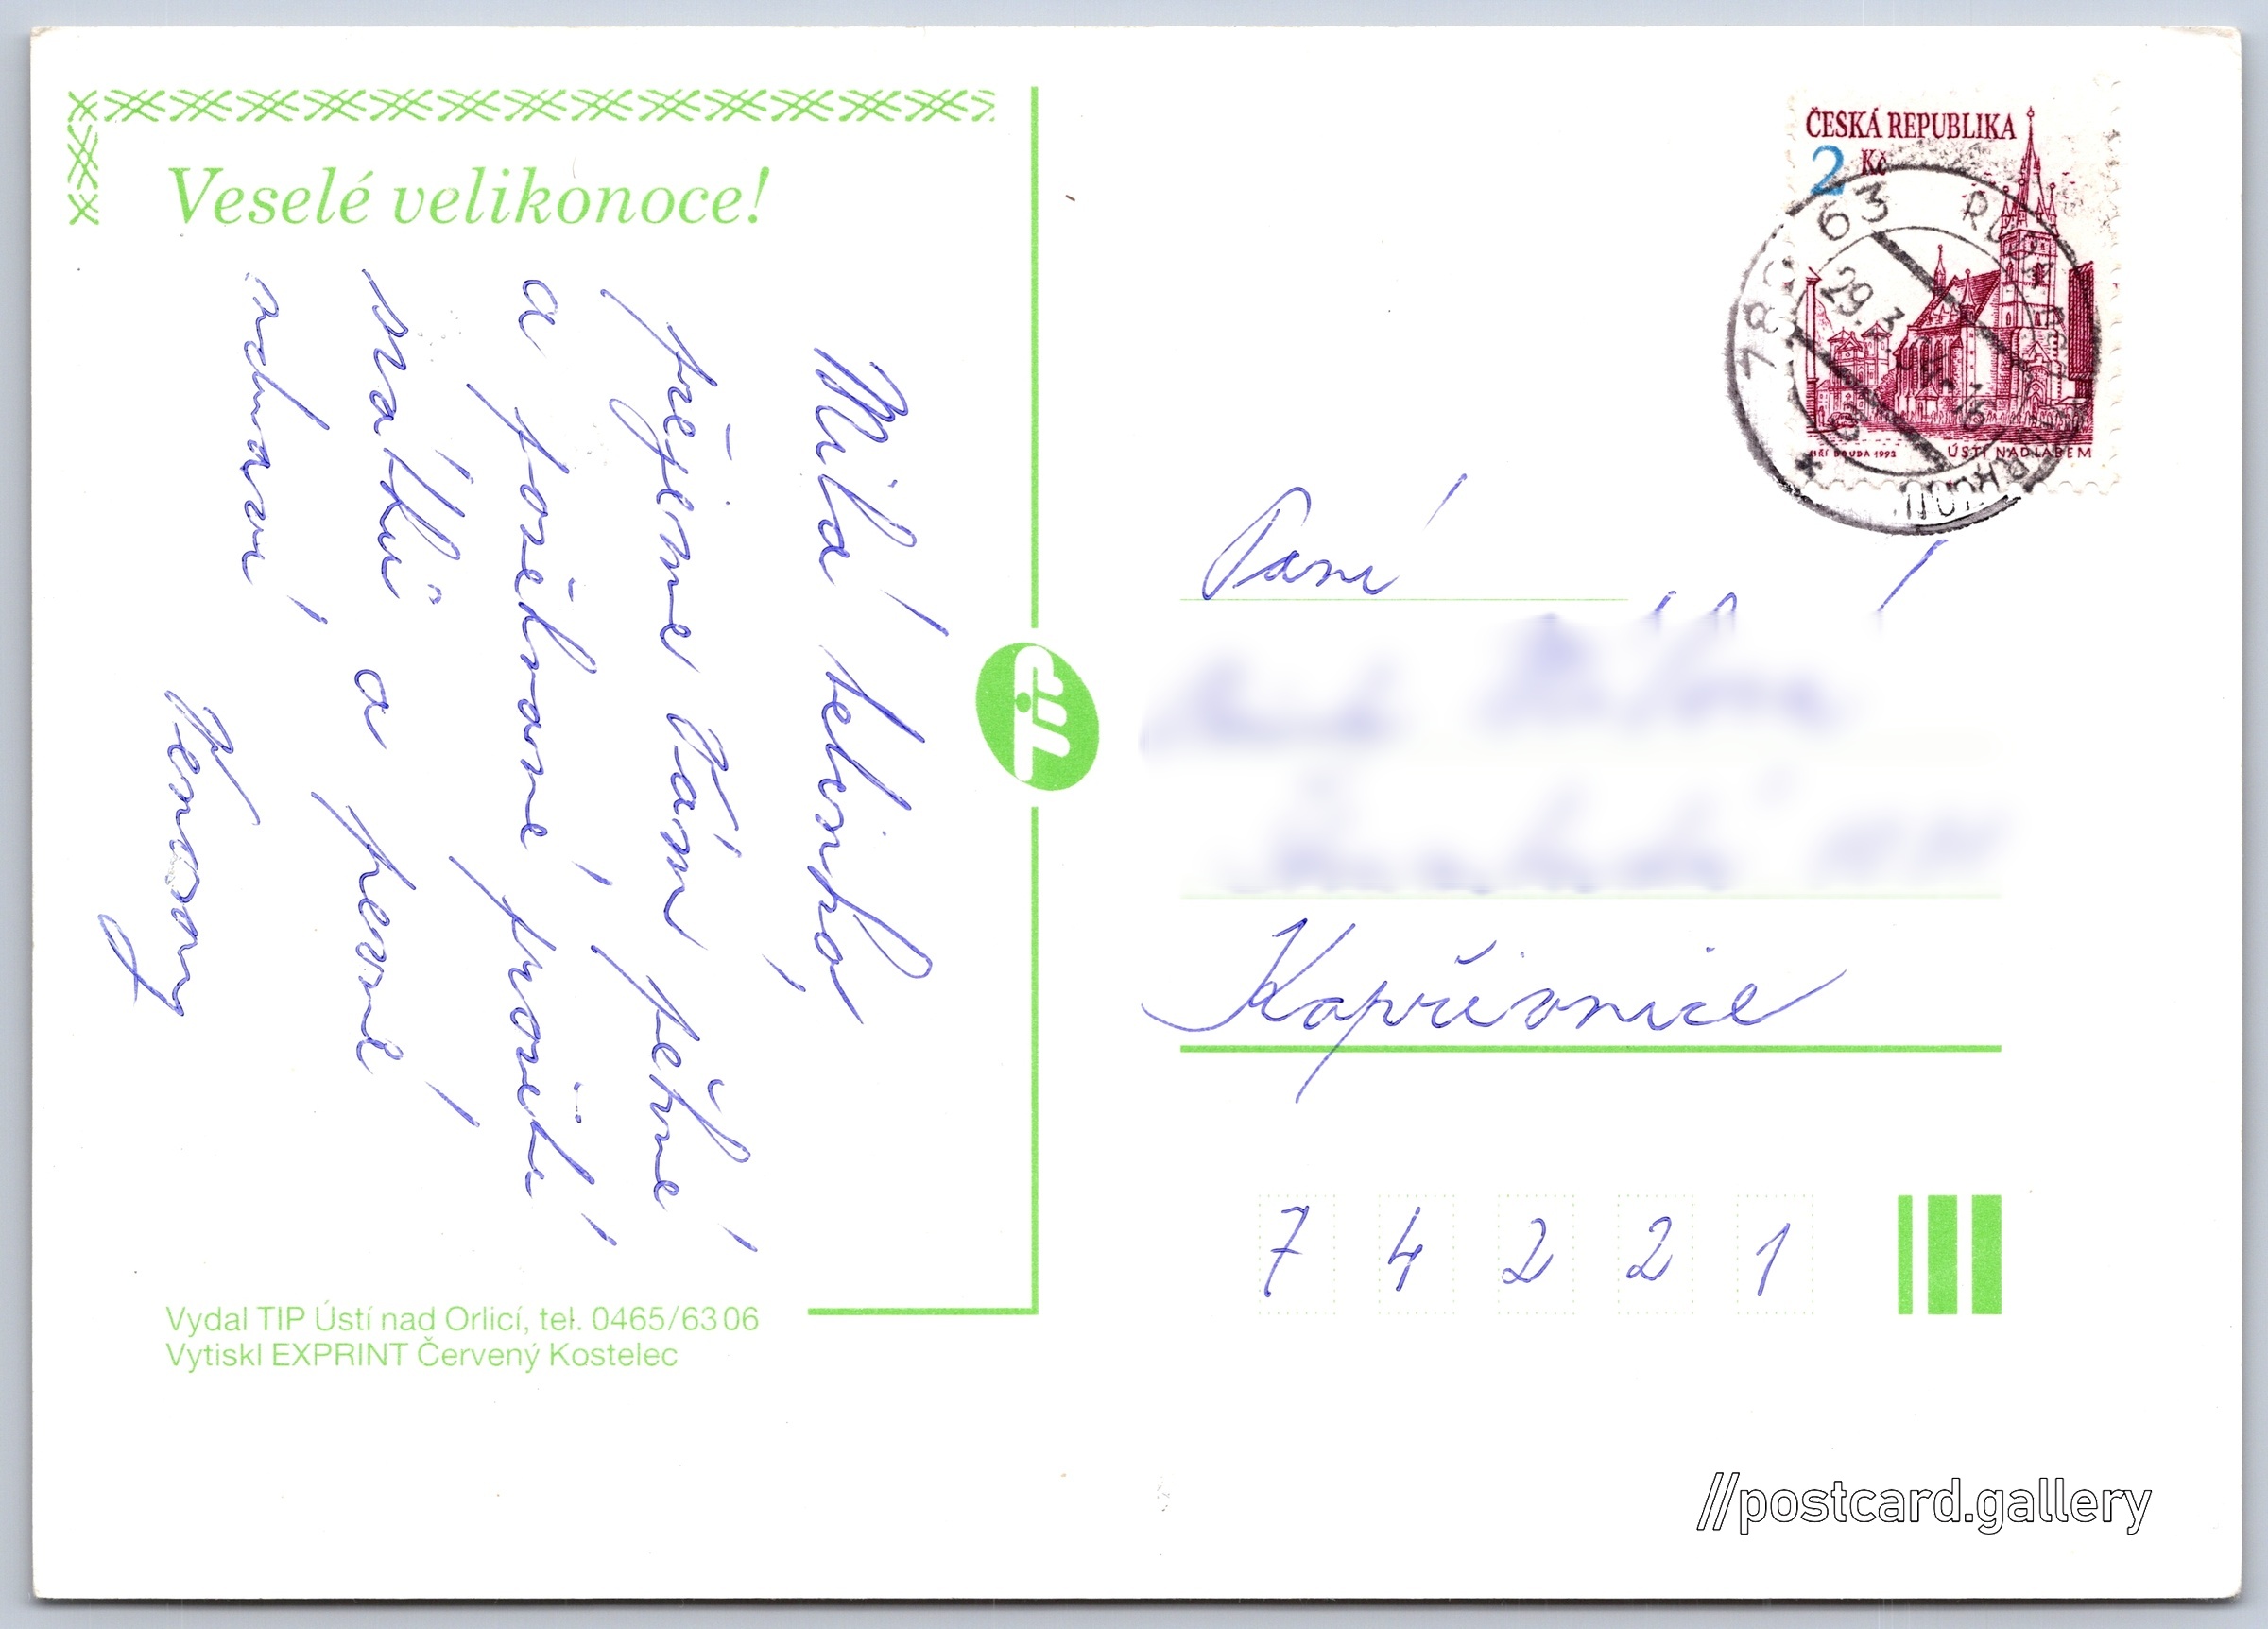 Veselé velikonoce!
Milá tetinko,
přejeme Vám pěkné
a požehnané prožití
svátků a pevné
zdraví
Vydal TIP Ústí nad Orlicí, tel. 0465/6306
Vytiskl EXPRINT Červený Kostelec
TIP
ČESKÁ REPUBLIKA
2 Kč
JIŘÍ BOUDA 1992 ÚSTÍ NAD LABEM
789 63
29.3.94-16
Paní
Kopřivnice
7 4 2 2 1
//postcard.gallery